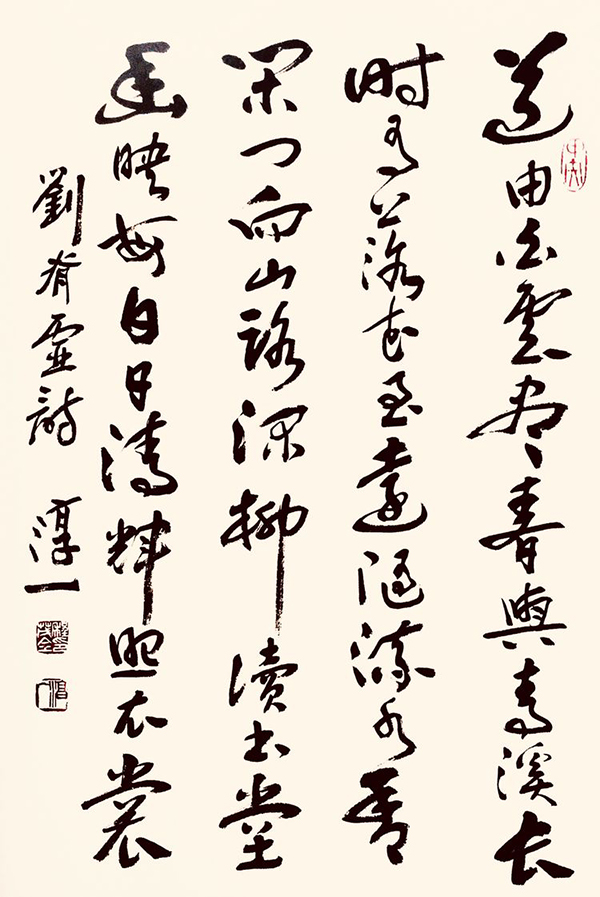 道由白雲盡春與青溪長
时有落花至遠隨流水香
閑門向山路深柳讀書堂
幽映每白日清輝照衣裳
劉眘虛詩 淳一